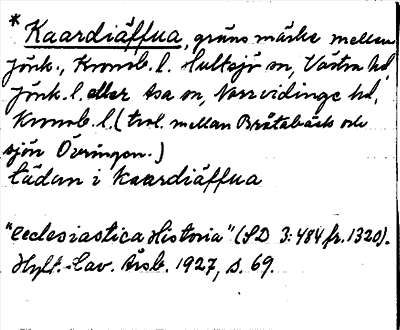 * Kaardiäffua, gränsmärke mellan
Jönk., Kronob. l. Hultsjö sn, Västra hd,
Jönk. l. eller Asa sn, Norrvidinge hd,
Kronob. l. (trol. mellan Bråtabäck och
sjön Övringen.)
tädan i kaardiäffua
"Ecclesiastica Historia" (SD 3:484 fr. 1320).
Hylt.-Cav. Årsb. 1927, s. 69.